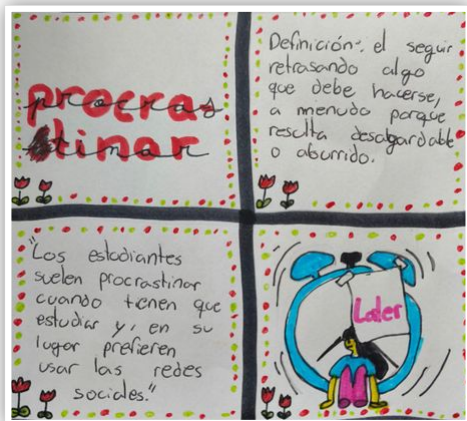 procras
tinar
Definición: el seguir
retrasando algo
que debe hacerse,
a menudo porque
resulta desalgardable
o aburrido.
"Los estodiantes
suelen procrastinar
cuando tenen que
estudiar y, en su
lugar prefieren
usar las redes
sociales."
Later